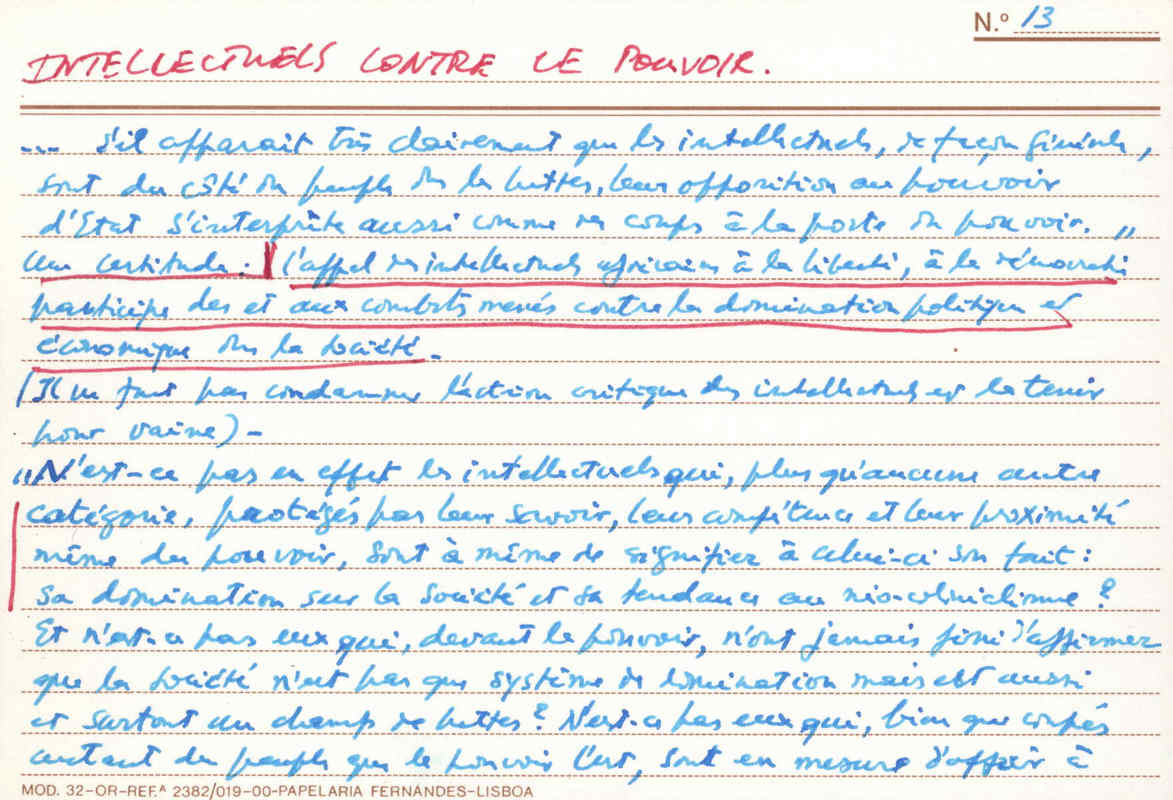 N.º 13
INTELLECTUELS CONTRE LE POUVOIR.
... s'il apparait très clairement que les intellectuels, de façon générale,
sont du côté du peuple dans les luttes, leur opposition au pouvoir
d'Etat s'interprète aussi comme des coups à la porte du pouvoir. "
Une certitude : l'appel des intellectuels africains à la liberté, à la démocratie
participe des et aux combats menés contre la domination politique et
économique dans la société -
(Il ne faut pas condamner l'action critique des intellectuels et la tenir
pour vaine) -
"N'est-ce pas en effet les intellectuels qui, plus qu'aucune autre
catégorie, protégés par leur savoir, leur compétence et leur proximité
même du pouvoir, sont à même de signifier à celui-ci son fait :
sa domination sur la société et sa tendance au néo-colonialisme ?
Et n'est-ce pas eux qui, devant le pouvoir, n'ont jamais fini d'affirmer
que la société n'est pas que système de domination mais est aussi
et surtout un champ de luttes ? N'est-ce pas eux qui, bien que coupés
autant du peuple que le pouvoir l'est, sont en mesure d'offrir à
MOD. 32-OR-REF.ª 2382/019-00-PAPELARIA FERNANDES-LISBOA